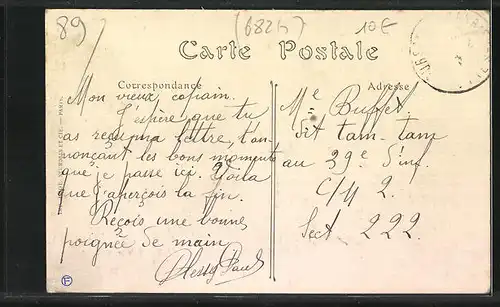 89
(682h)
10€
Carte Postale
Correspondance
Adresse
Mon vieux copain.
J'espère que tu
as reçu ma lettre, t'an-
nonçant les bons moments
que je passe ici. Voila
que j'aperçois la fin.
Reçois une bonne
poignée de main
Plessy Paul
Me Buffet
dit tam-tam
au 29e d'inf.
C/M 2.
Sect 222.